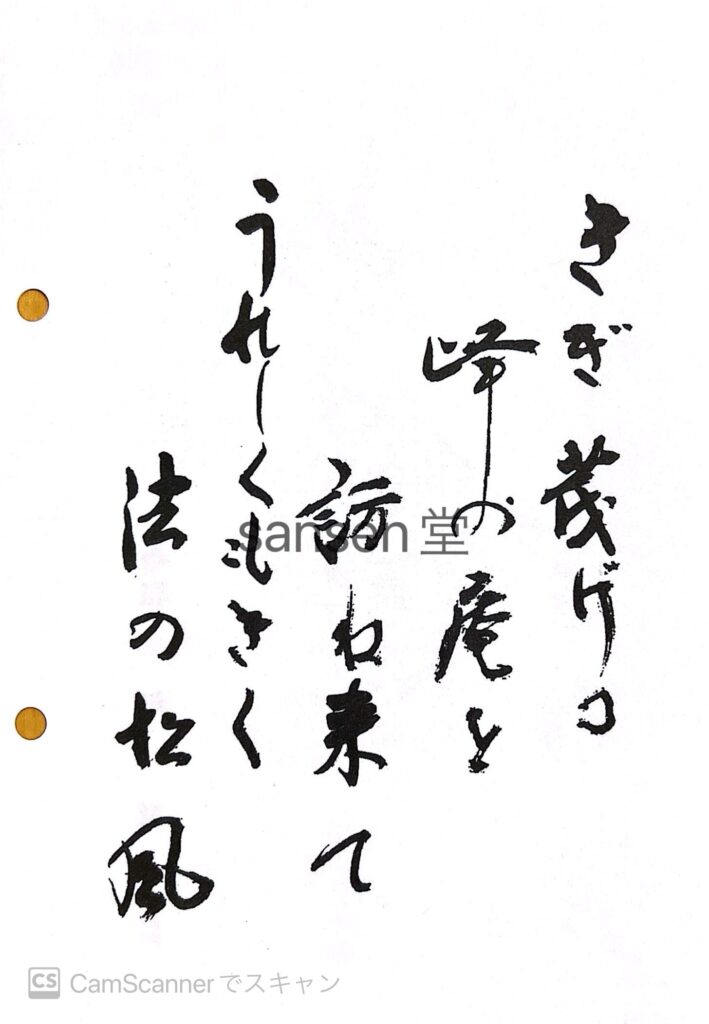 きぎ茂げる
峰の庵を
訪ね来て
うれしくもきく
法の松風
sansen堂
CS CamScannerでスキャン